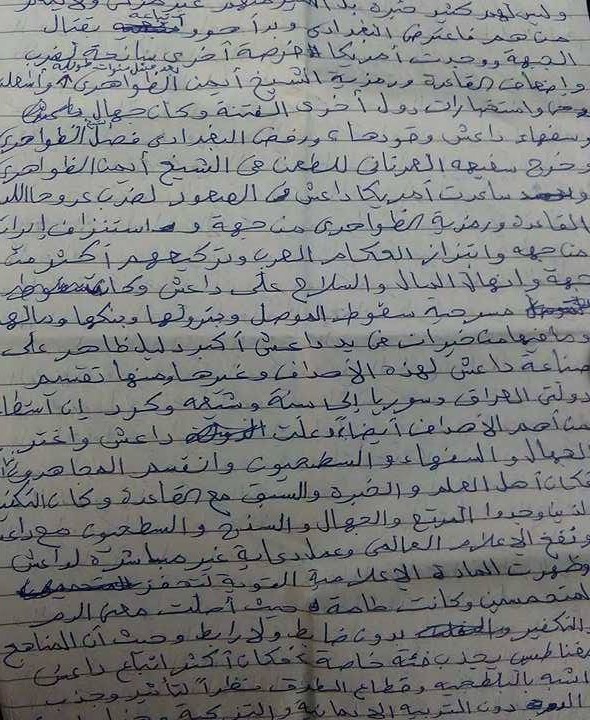 وليس لهم كثير خبرة
من هم فاعترض البغدادي وبدأ بقتال
الجبهة ووجدت أمريكا فرصة أخرى سانحة لضرب
وإضعاف القاعدة ورمزية الشيخ أيمن الظواهري
واستخبارات دول أخرى الفتنة وكان جهال
وسفهاء داعش وقودها ورفض البغدادي فصل الظواهري
وخرج سفيهه العدناني للطعن في الشيخ أيمن الظواهري
ساعدت أمريكا داعش في الصعود لضرب عدوها
القاعدة ورمزية الظواهري من جهة و استنزاف إيران
من جهه وابتزاز الحكام العرب وتركيعهم أكثر من
جهة وانهال المال والسلاح على داعش وكانت
مسرحية سقوط الموصل وبترولها وبنكها ومالها
وما فيها من خيرات في يد داعش أكبر دليل ظاهر على
صناعة داعش لهذه الأهداف وغيرها ومنها تقسيم
دولتي العراق وسوريا إلى سنة وشيعه وكرد إن
من أهم الأهداف أيضاً، داعش واغتر
الجهال والسفهاء والسطحيون وانقسم المجاهدون
فكان أهل العلم والخبرة والسبق مع القاعدة وكان
والجهال والسذج والسطحيون مع
ونفخ الإعلام العالمي وعمل دعاية غير مباشرة لداعش
وظهرت المادة الإعلامية القوية لتحفز
المتحمسين وكانت طامة حيث أصلت معنى الدم
والتكفير بدون ضابط ولا رابط وحيث أن المناهج
مغناطيس يجذب فئة خاصة فكان أكثر اتباع داعش
اشبه بالبلطجيه وقطاع الطرق نظراً لتأثير وجذب
دون التربية الإيمانية والتزكية